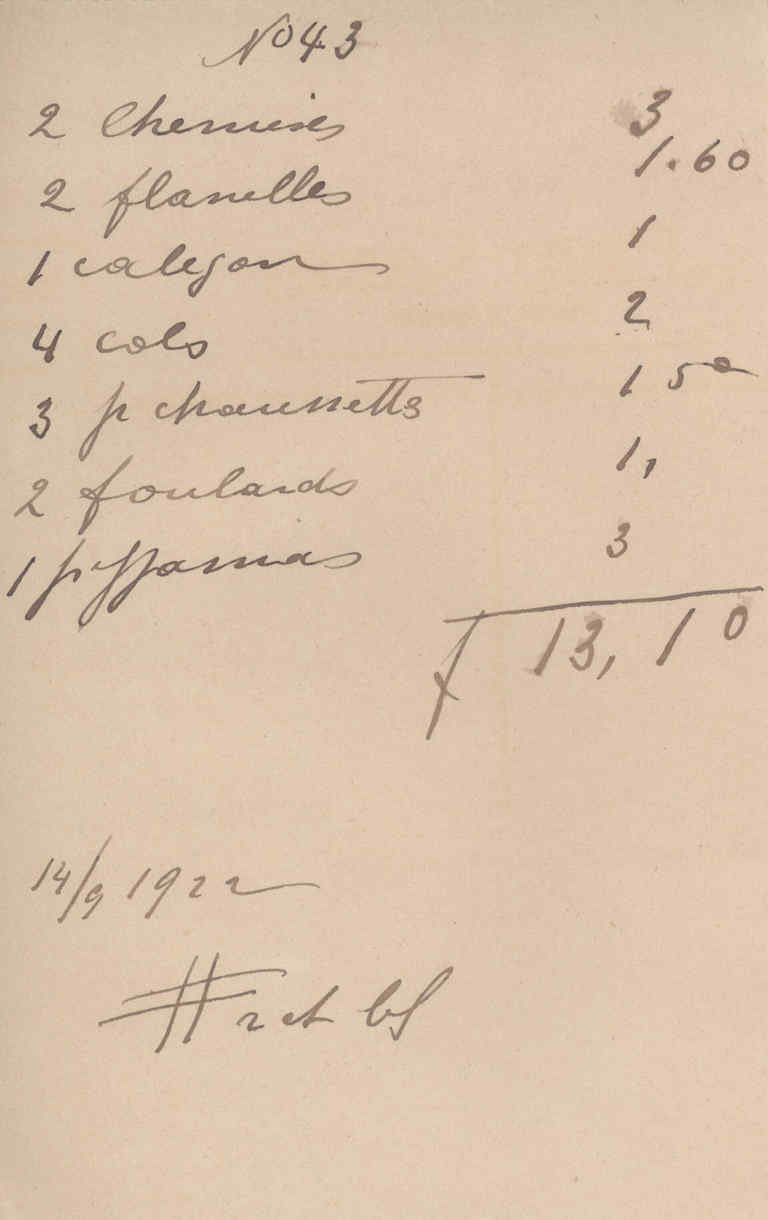 No 43
2 Chemises 3
2 flanelles 1.60
1 caleçon 1
4 cols 2
3 p chaussetts 1 50
2 foulards 1,
1 pyjamas 3
f 13,10
14/9 1922